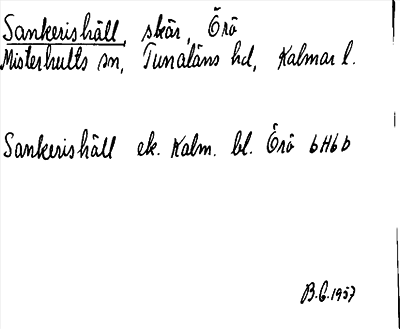 Sankerishäll, skär, Örö
Misterhults sn, Tunaläns hd, Kalmar l.
Sankerishäll ek. Kalm. bl. Örö 6H6b
B.G. 1957